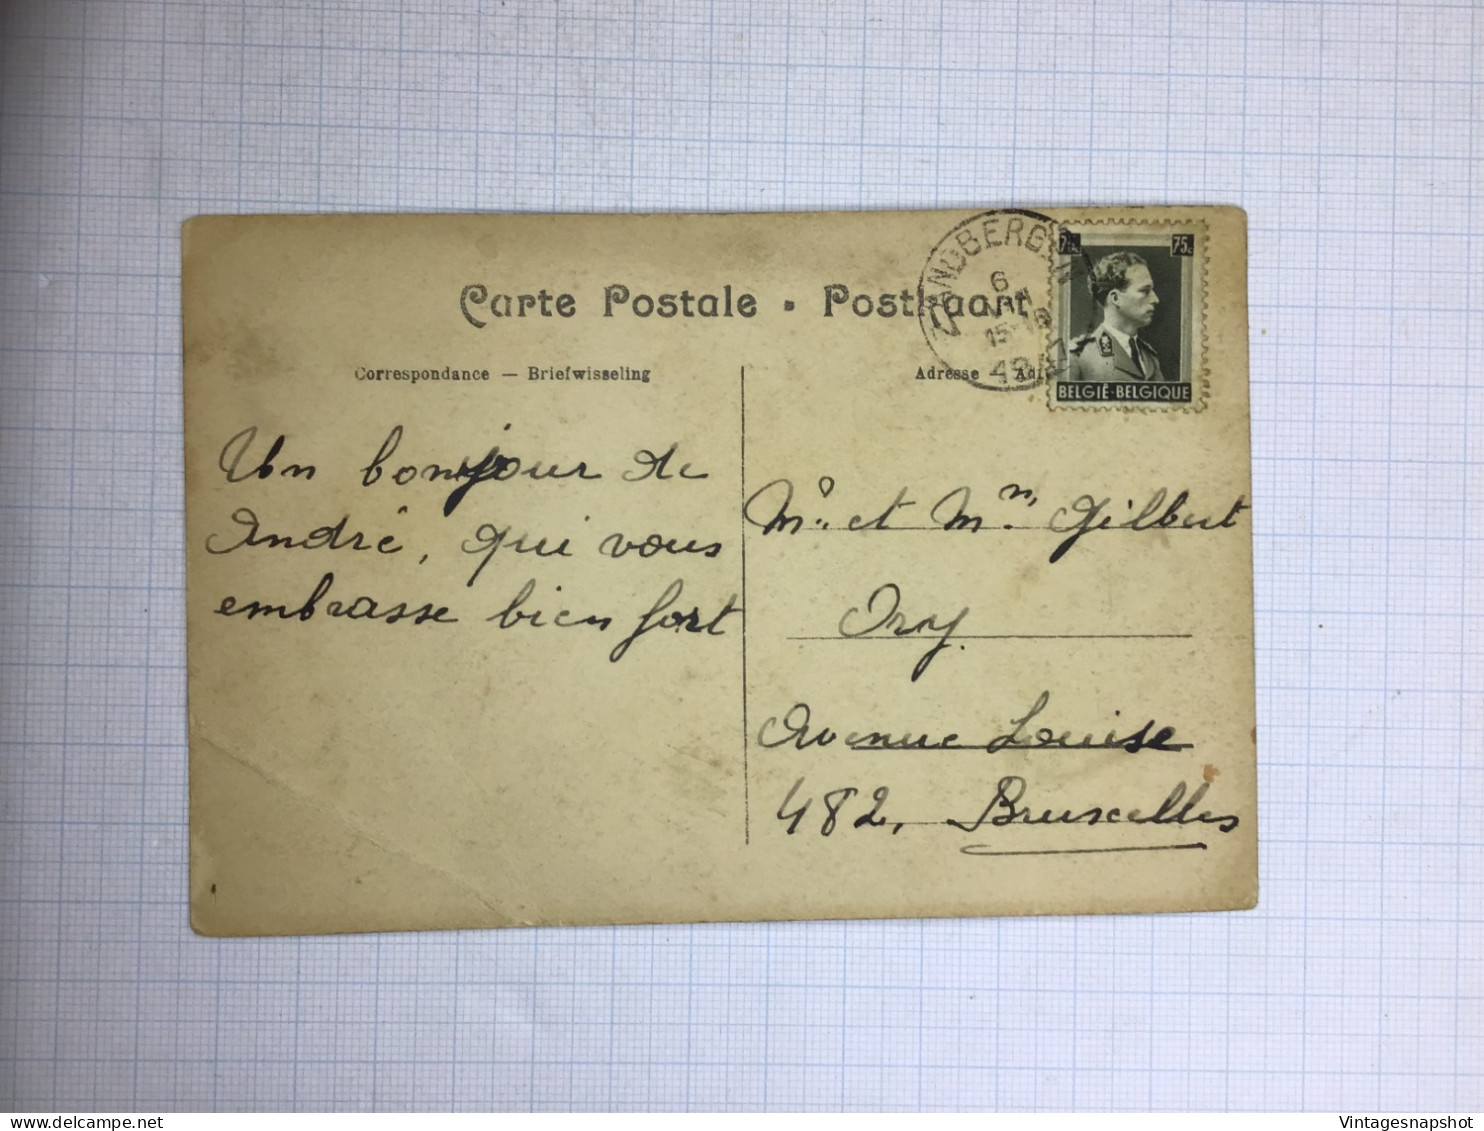 Carte Postale - Postkaart
Correspondance — Briefwisseling
Adresse — Ad
ANDBERG
6
15-16
BELGIË-BELGIQUE
75c
Un bonjour de
André, qui vous
embrasse bien fort
Mr et Mme Gilbert
Ory
Avenue Louise
482, Bruxelles
Vintagesnapshot